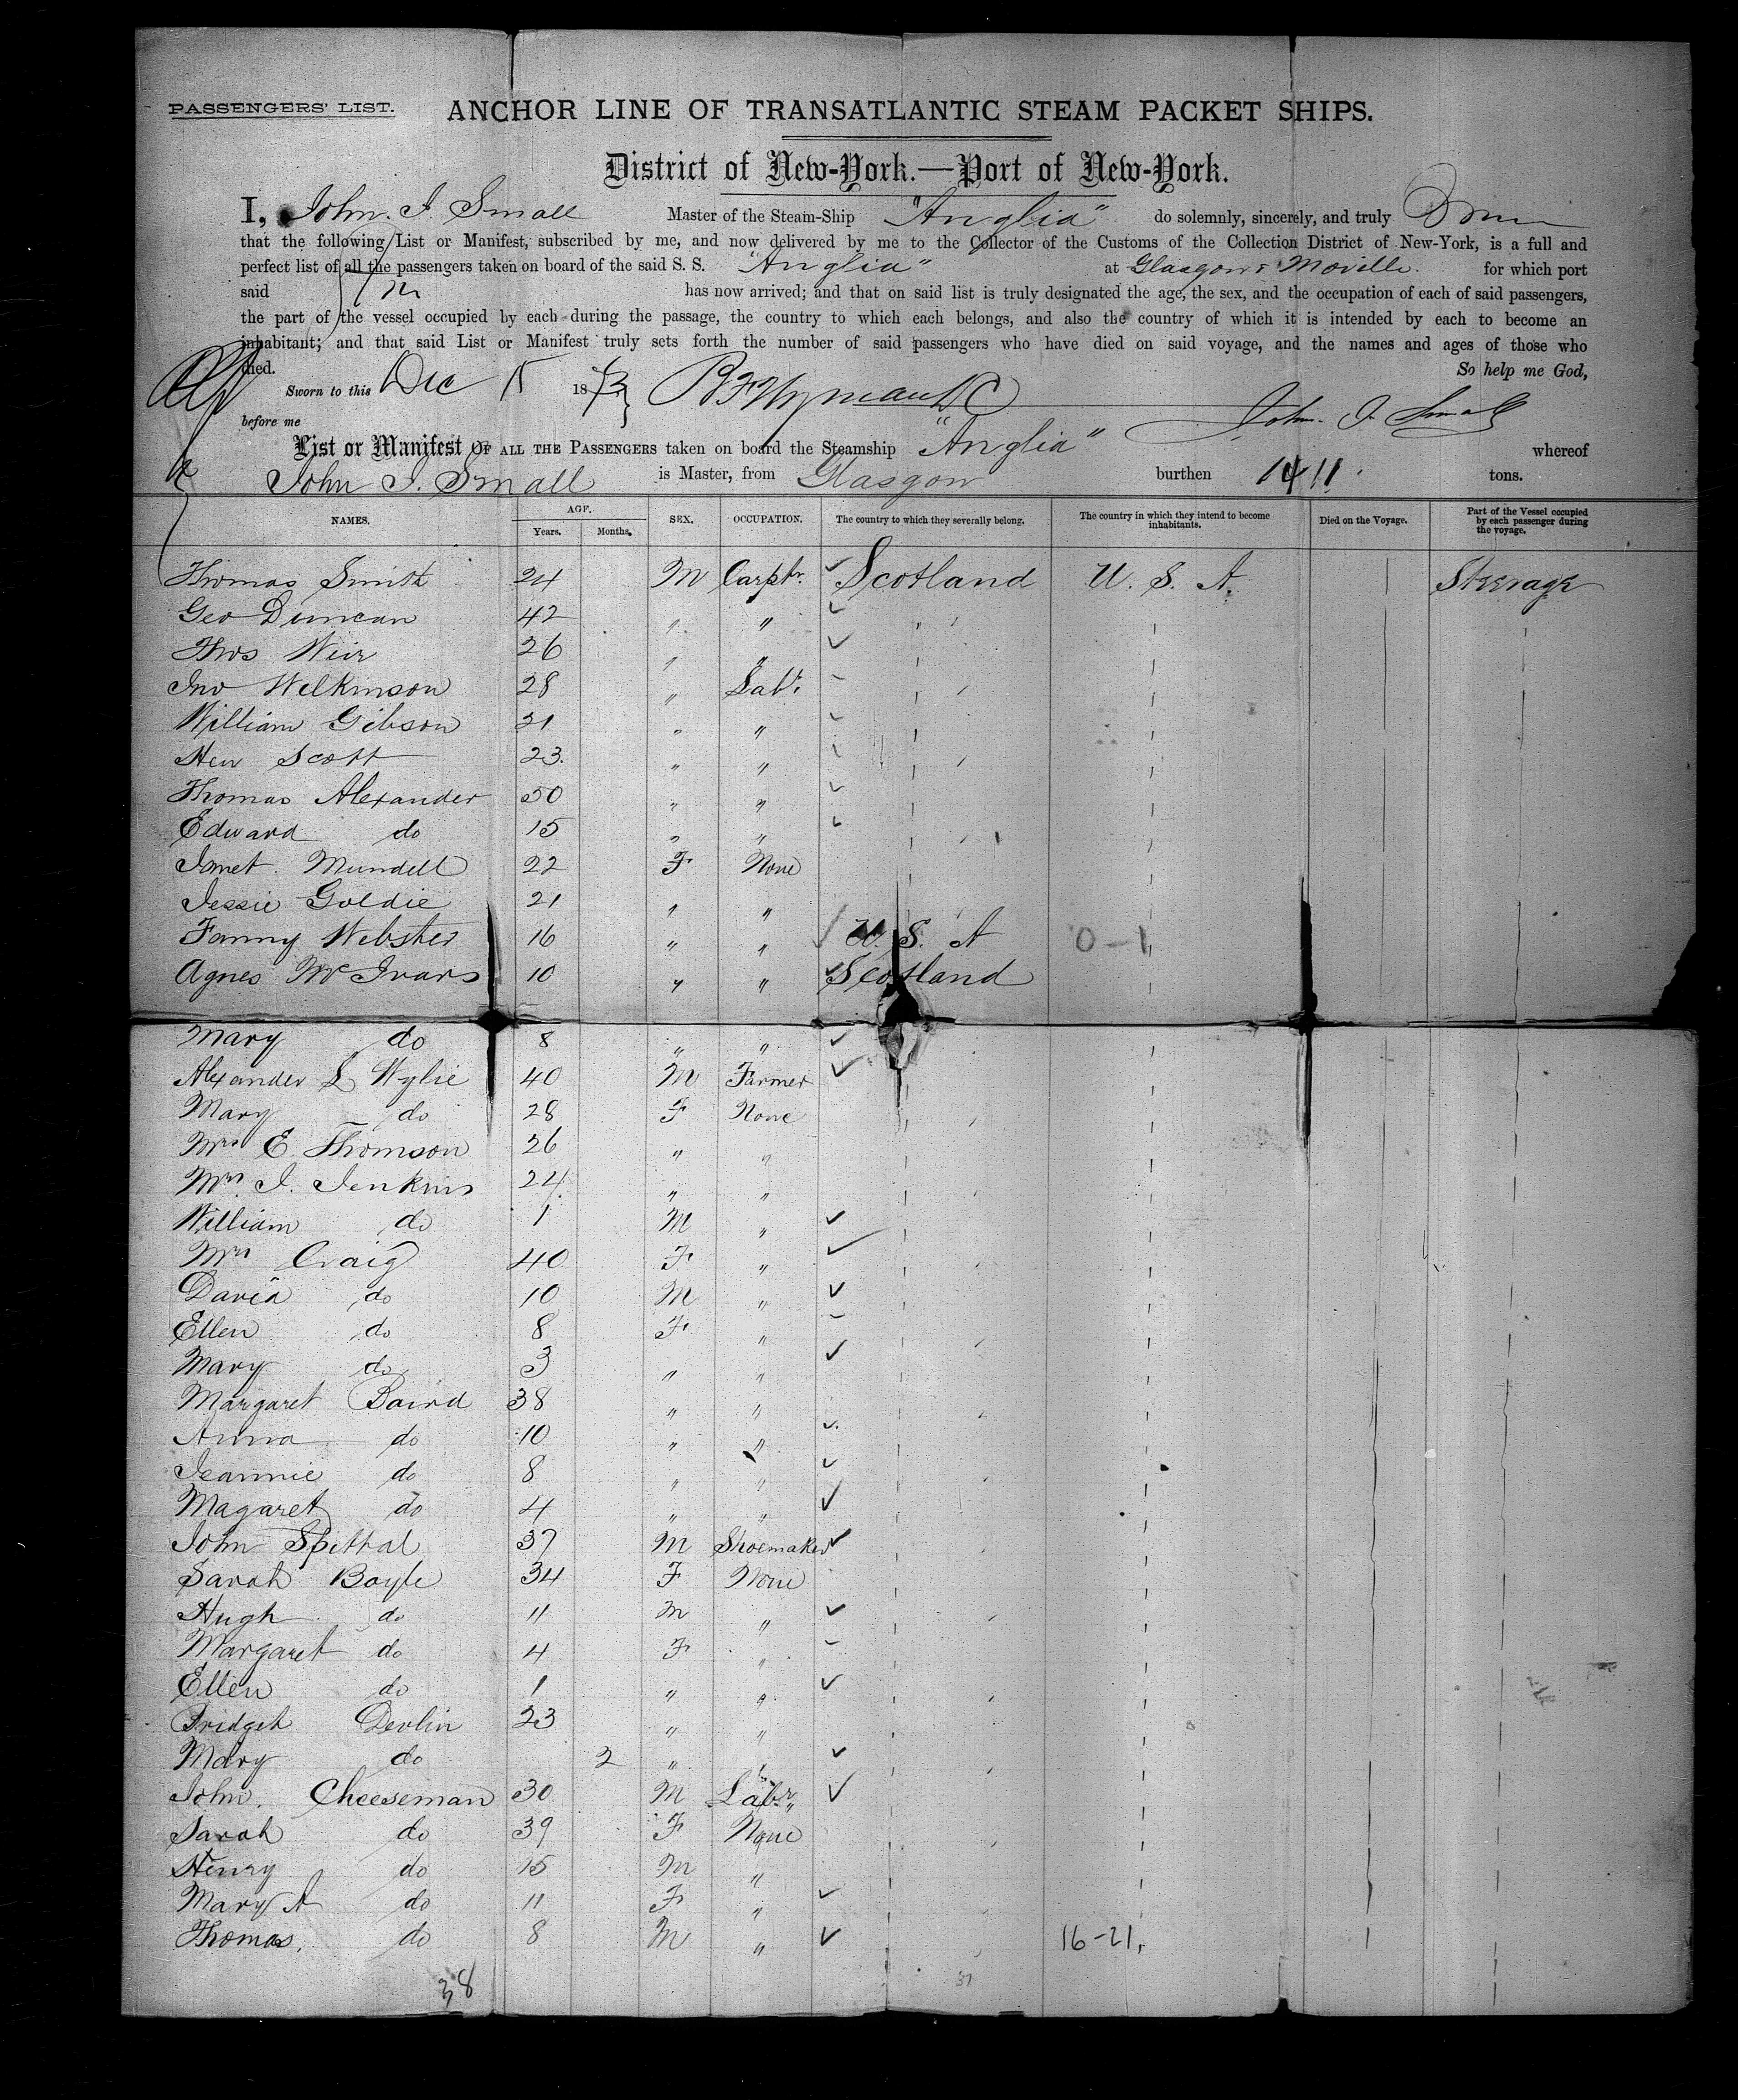 PASSENGERS' LIST. ANCHOR LINE OF TRANSATLANTIC STEAM PACKET SHIPS.
District of New-York.—Port of New-York.
I, John. I. Small Master of the Steam-Ship "Anglia" do solemnly, sincerely, and truly
that the following List or Manifest, subscribed by me, and now delivered by me to the Collector of the Customs of the Collection District of New-York, is a full and
perfect list of all the passengers taken on board of the said S. S. "Anglia" at Glasgow & Moville. for which port
said has now arrived; and that on said list is truly designated the age, the sex, and the occupation of each of said passengers,
the part of the vessel occupied by each during the passage, the country to which each belongs, and also the country of which it is intended by each to become an
inhabitant; and that said List or Manifest truly sets forth the number of said passengers who have died on said voyage, and the names and ages of those who
died. So help me God,
Sworn to this Dec 15 1873
before me John. I. Small
List or Manifest OF ALL THE PASSENGERS taken on board the Steamship "Anglia" whereof
John I. Small is Master, from Glasgow burthen 1411. tons.
NAMES. AGE. Years. Months. SEX. OCCUPATION. The country to which they severally belong. The country in which they intend to become inhabitants. Died on the Voyage. Part of the Vessel occupied by each passenger during the voyage.
Thomas Smith 24 M Carptr. Scotland U. S. A. Steerage
Geo Duncan 42 " "
Thos Weir 26 " "
Jno Wilkinson 28 " Labr.
William Gibson 21 " "
Hew Scott 23. " "
Thomas Alexander 50 " "
Edward do 15 " "
Janet Mundell 22 F None
Jessie Goldie 21 " "
Fanny Webster 16 " " U. S. A 0-1
Agnes McIvars 10 " " Scotland
Mary do 8 " "
Alexander L Wylie 40 M Farmer
Mary do 28 F None
Mrs E Thomson 26 " "
Mrs. I. Jenkins 24 " "
William do 1 M "
Mrs Craig 40 F "
David do 10 M "
Ellen do 8 F "
Mary do 3 " "
Margaret Baird 38 " "
Anna do 10 " "
Jeannie do 8 " "
Magaret do 4 " "
John Spittal 37 M Shoemaker
Sarah Boyle 34 F None
Hugh do 11 M "
Margaret do 4 F "
Ellen do 1 " "
Bridget Devlin 23 " "
Mary do 2 " "
John. Cheeseman 30 M Labr.
Sarah do 39 F None
Henry do 15 M "
Mary A do 11 F "
Thomas. do 8 M " 16-21,
38 37